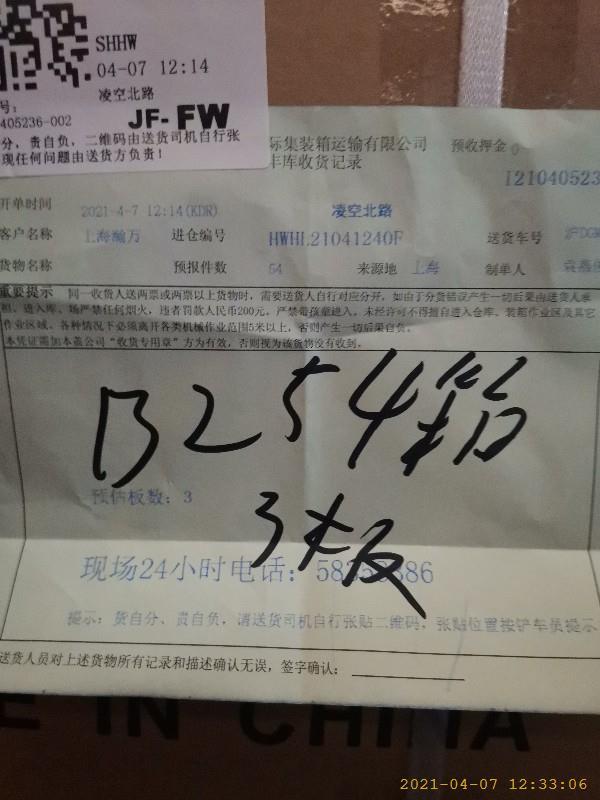 SHHW
04-07 12:14
凌空北路
号:
405236-002
JF-FW
分，责自负，二维码由送货司机自行张
现任何问题由送货方负责！
际集装箱运输有限公司
车库收货记录
预收押金 0
I21040523
开单时间 2021-4-7 12:14(KDR) 凌空北路
客户名称 上海瀚万 进仓编号 HWHL21041240F 送货车号
货物名称 预报件数 54 来源地 上海 制单人
重要提示 同一收货人送两票或两票以上货物时，需要送货人自行对应分开，如由于分货错误产生一切后果由送货人承
担，进入库、场严禁任何烟火，违者罚款人民币200元。严禁带孩童进入，未经许可不得擅自进入仓库、装箱作业区及其它
作业区域，各种情况下必须离开各类机械作业范围5米以上，否则产生一切后果自负。
本凭证需加本盖公司“收货专用章”方为有效，否则视为该货物没有收到。
B2 54箱
预估板数: 3
3板
现场24小时电话:
提示: 货自分、责自负，请送货司机自行张贴二维码，张贴位置按铲车员提示
送货人员对上述货物所有记录和描述确认无误，签字确认:
E IN CHINA
2021-04-07 12:33:06